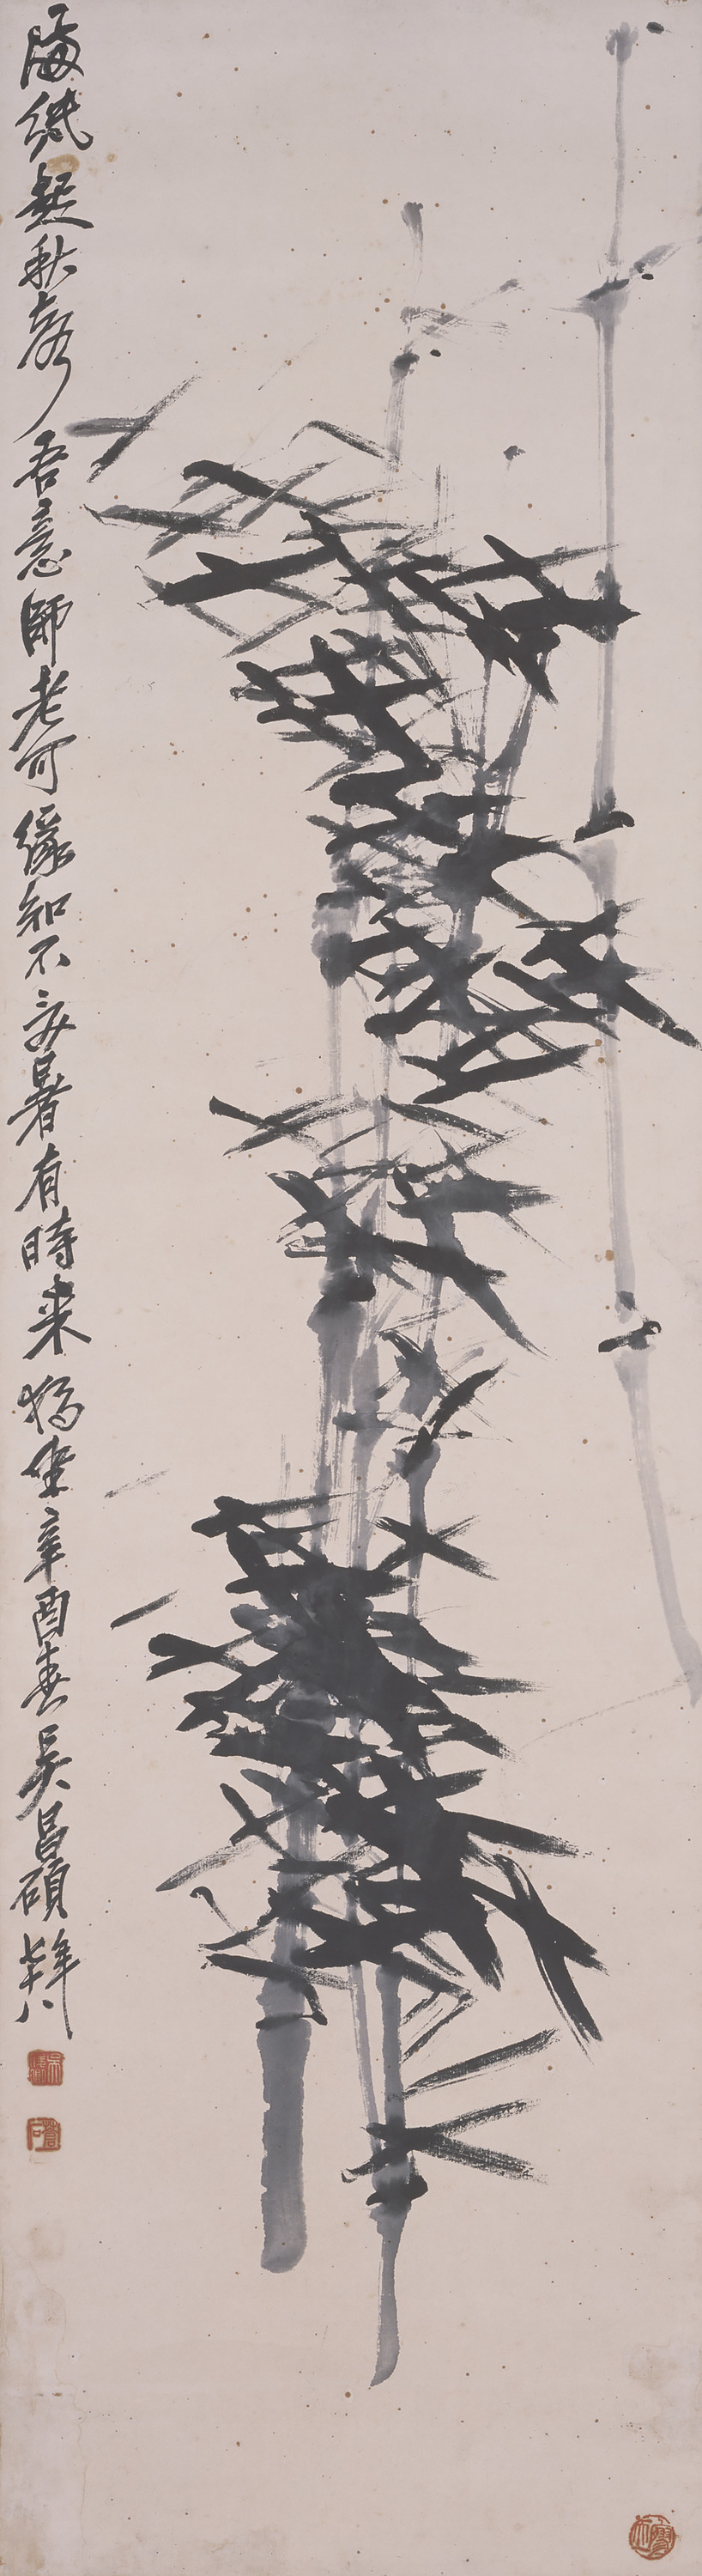 滿紙起秋聲吾意師老可緣知不受暑有時來獨坐辛酉春吳昌碩年七十八